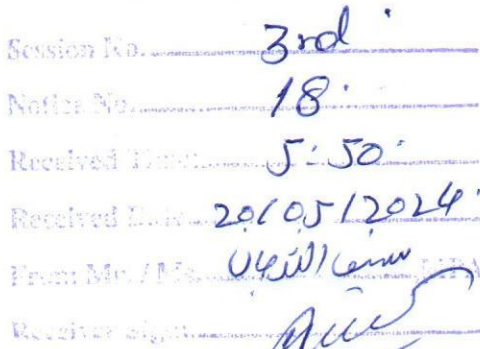 Session No. 3rd
Notice No. 18
Received Time 5:50
Received Date 20/05/2024
From Mr. / Ms. MPA
Receiver Sign